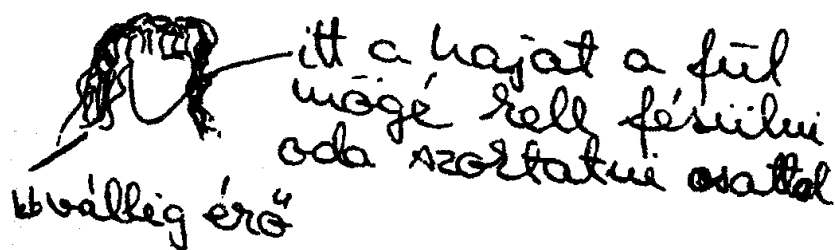 itt a haját a fül
mögé kell fésülni
oda szoktatni csattal
kb vállig érő